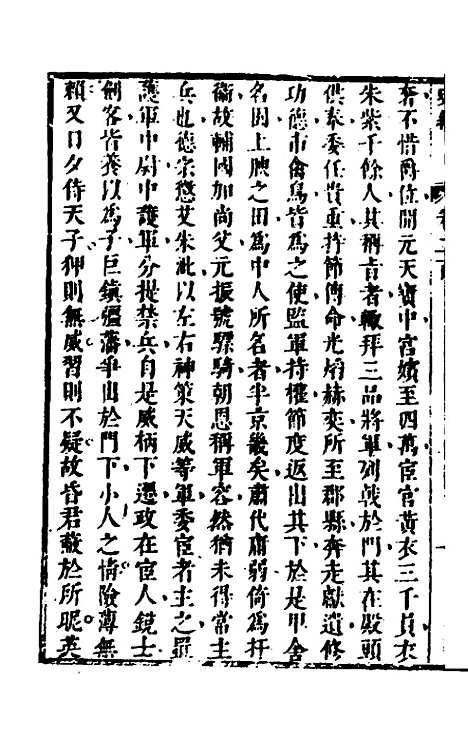 奢不惜爵位開元天寶中宮嬪至四萬宦官黃衣三千員衣
朱紫千餘人其稱旨者輒拜三品將軍列戟於門其在殿頭
供奉委任貴重持節傳命光焰赫奕所至郡縣奔走獻遺修
功德市禽鳥皆為之使監軍持權節度返出其下於是甲舍
名園上腴之田為中人所名者半京畿矣肅代庸弱倚為扞
衞故輔國加尚父元振號驃騎朝恩稱軍容然猶未得常主
兵也德宗懲艾朱泚以左右神策天威等軍委宦者主之置
護軍中尉中護軍分提禁兵自是威柄下遷政在宦人鏡士
劍客皆養以為子巨鎮疆藩爭出於門下小人之情險薄無
賴又日夕侍天子狎則無威習則不疑故昏君蔽於所昵英